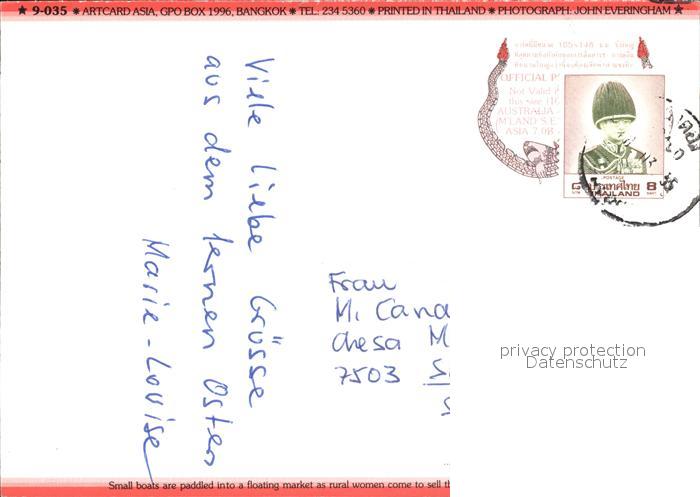 ★ 9-035 ★ ARTCARD ASIA, GPO BOX 1996, BANGKOK ★ TEL: 234 5360 ★ PRINTED IN THAILAND ★ PHOTOGRAPH: JOHN EVERINGHAM ★
OFFICIAL P
Not Valid
this size (10
AUSTRALIA
(M'LAND S.E.
ASIA 7.0B
POSTAGE
8 ประเทศไทย 8
THAILAND
Viele liebe Grüsse
aus dem fernen Osten
Marie-Louise
Frau
M. Cana
Chesa M
7503
privacy protection
Datenschutz
Small boats are paddled into a floating market as rural women come to sell th